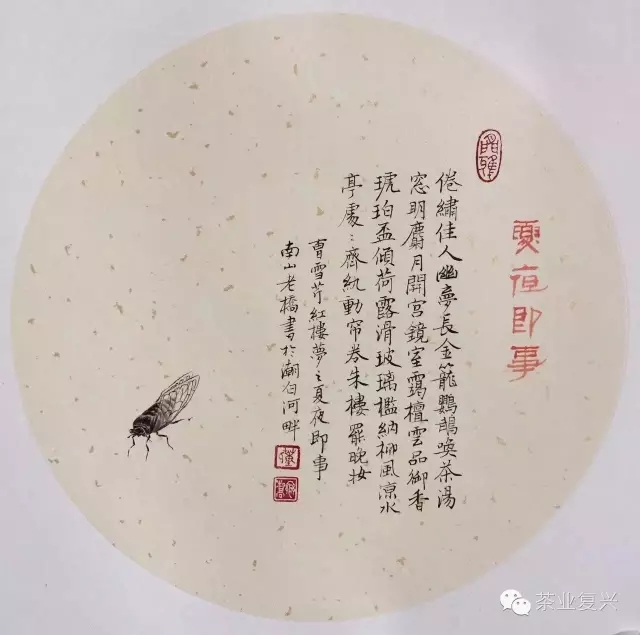 夏夜即事
倦繡佳人幽夢長金籠鸚鵡喚茶湯
窓明麝月開宮鏡室靄檀雲品御香
琥珀盃傾荷露滑玻璃檻納柳風涼水
亭處〻齊紈動帘卷朱樓罷晚妝
曹雪芹紅樓夢之夏夜即事
南山老橋書於潮白河畔
茶业复兴